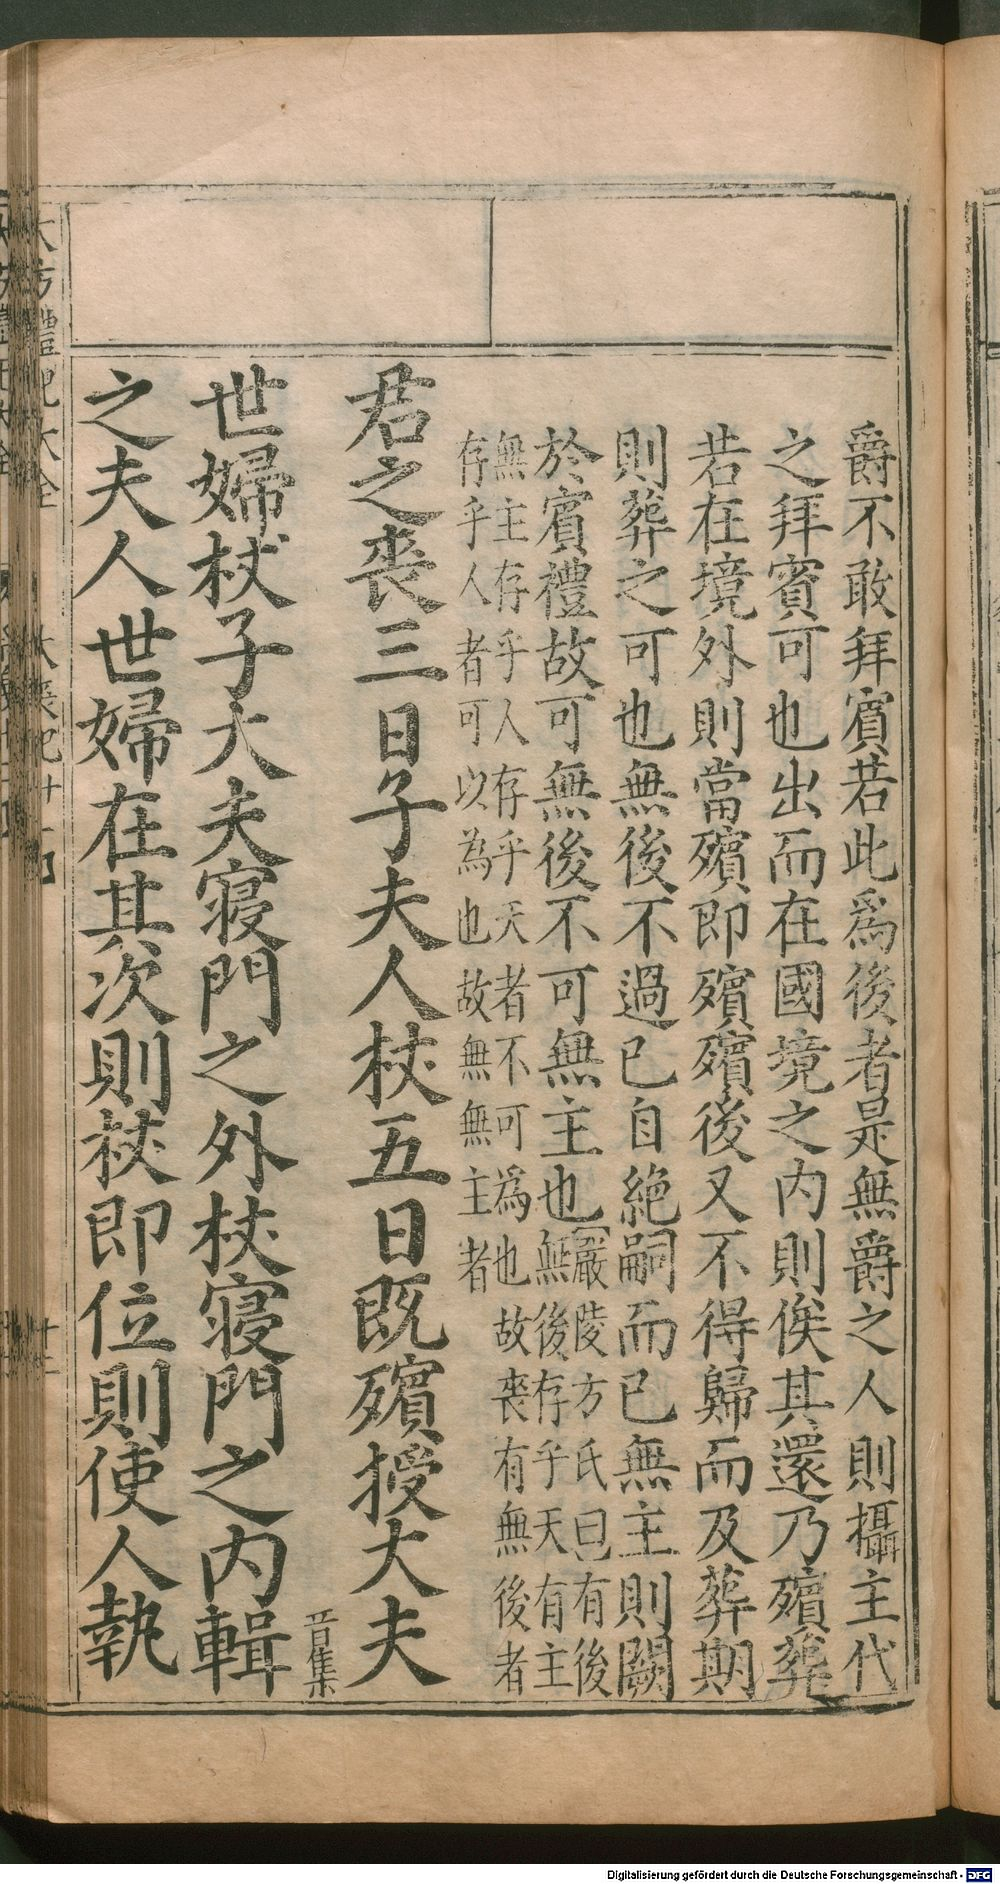 爵不敢拜賓若此爲後者是無爵之人則攝主代
之拜賓可也出而在國境之内則俟其還乃殯葬
若在境外則當殯即殯殯後又不得歸而及葬期
則葬之可也無後不過已自絶嗣而已無主則闕
於賓禮故可無後不可無主也
嚴陵方氏曰有後
無後存乎天有主
無主存乎人存乎天者不可爲也故喪有無後者
存乎人者可以為也故無無主者
君之喪三日子夫人杖五日既殯授大夫
世婦杖子大夫寢門之外杖寢門之内輯
音集
之夫人世婦在其次則杖即位則使人執
大方禮記大全
大喪記廿二
十二
Digitalisierung gefördert durch die Deutsche Forschungsgemeinschaft - DFG